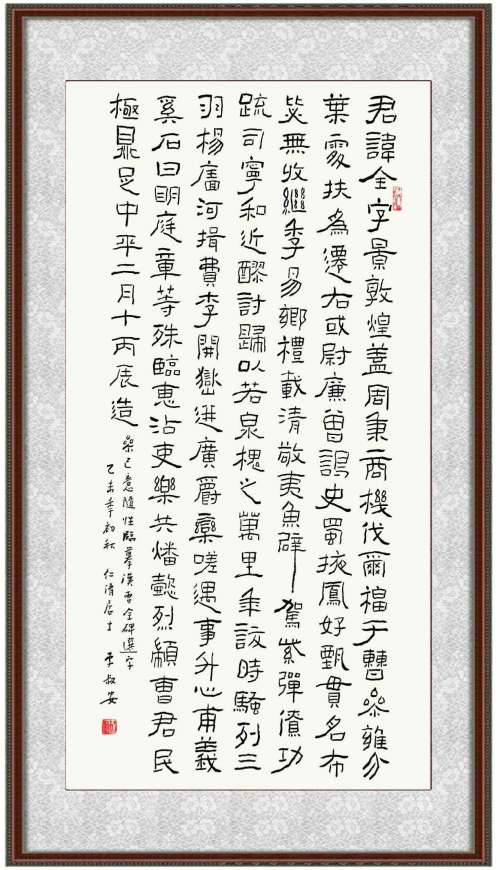 君諱全字景敦煌蓋周秉商機伐爾福于曹叅雍分
葉扶為遷右或尉廉曾謁史蜀掖鳳好甄貫名布
無收繼季易鄉禮載清敬夷魚辟卜駕紫彈功
疏司寧和近醪討歸以若泉槐之萬里年設時騷列三
羽楊河揖費李開嶽進廣爵欒嗟遇事升心甫義
奚石曰明庭章等殊臨惠沾吏樂共燔懿烈潁曹君民
極鼎足中平二月十丙辰造
叅己意隨性臨摹漢曹全碑選字
乙未年初秋 仁清居士 叔安